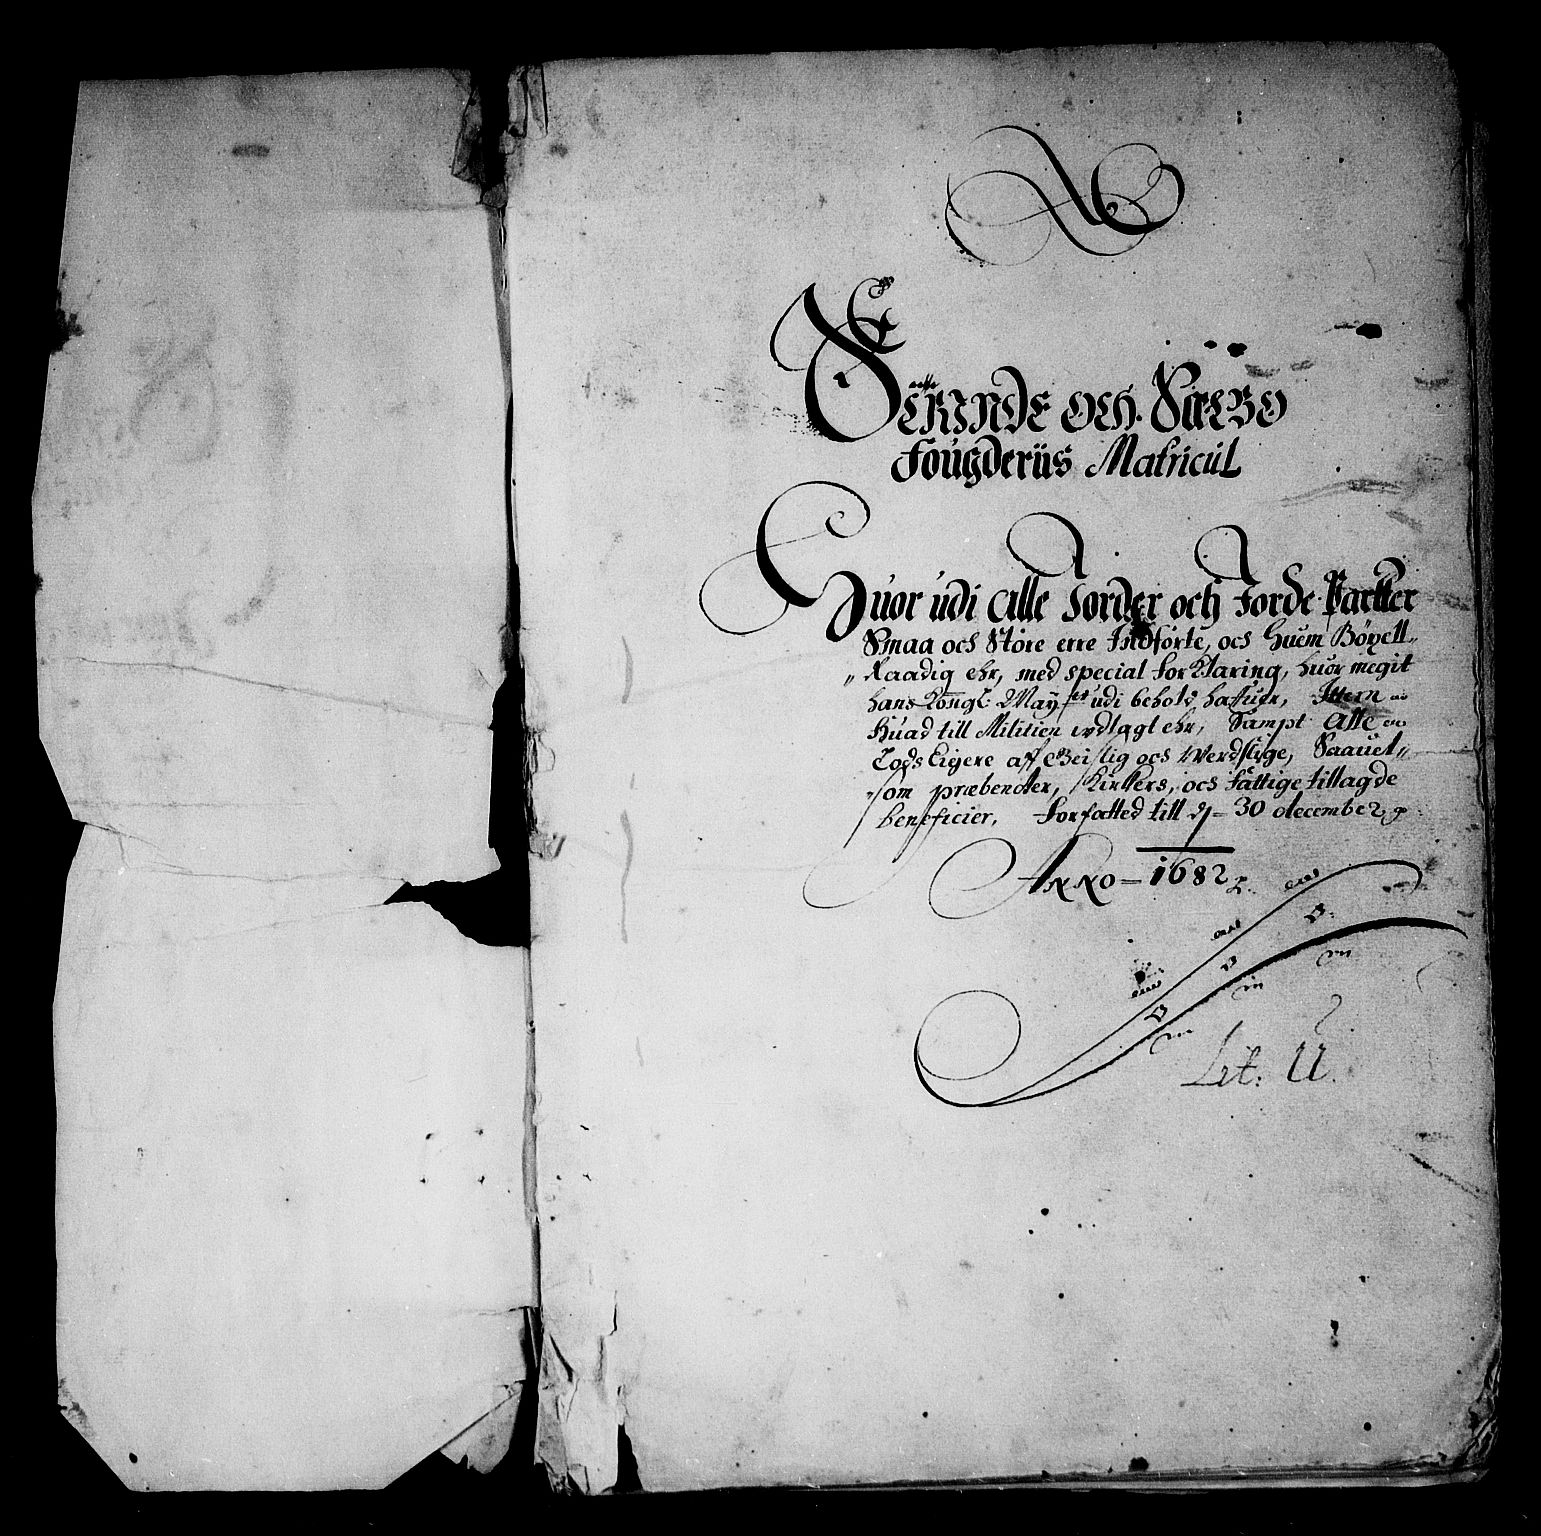 Strinde och Sælbo
Fougderiis Matricul
Huor udi alle Jorder och Jorde Partter
Smaa och Støre erre Indførte, och huem Bÿxell
Raadig ehr, med special forklaring, huor megit
hans Kongl: Maÿ:et udi behold hafuer, Ittem
huad till Militien udlagt ehr, Sampt alle
Gods Eigere aff Geistlig och Werdslige, Saauel
som præbender, Kirkers, och fattige tillagde
beneficier, Forfatted till d 30 december
Anno 1682
Lit: U.